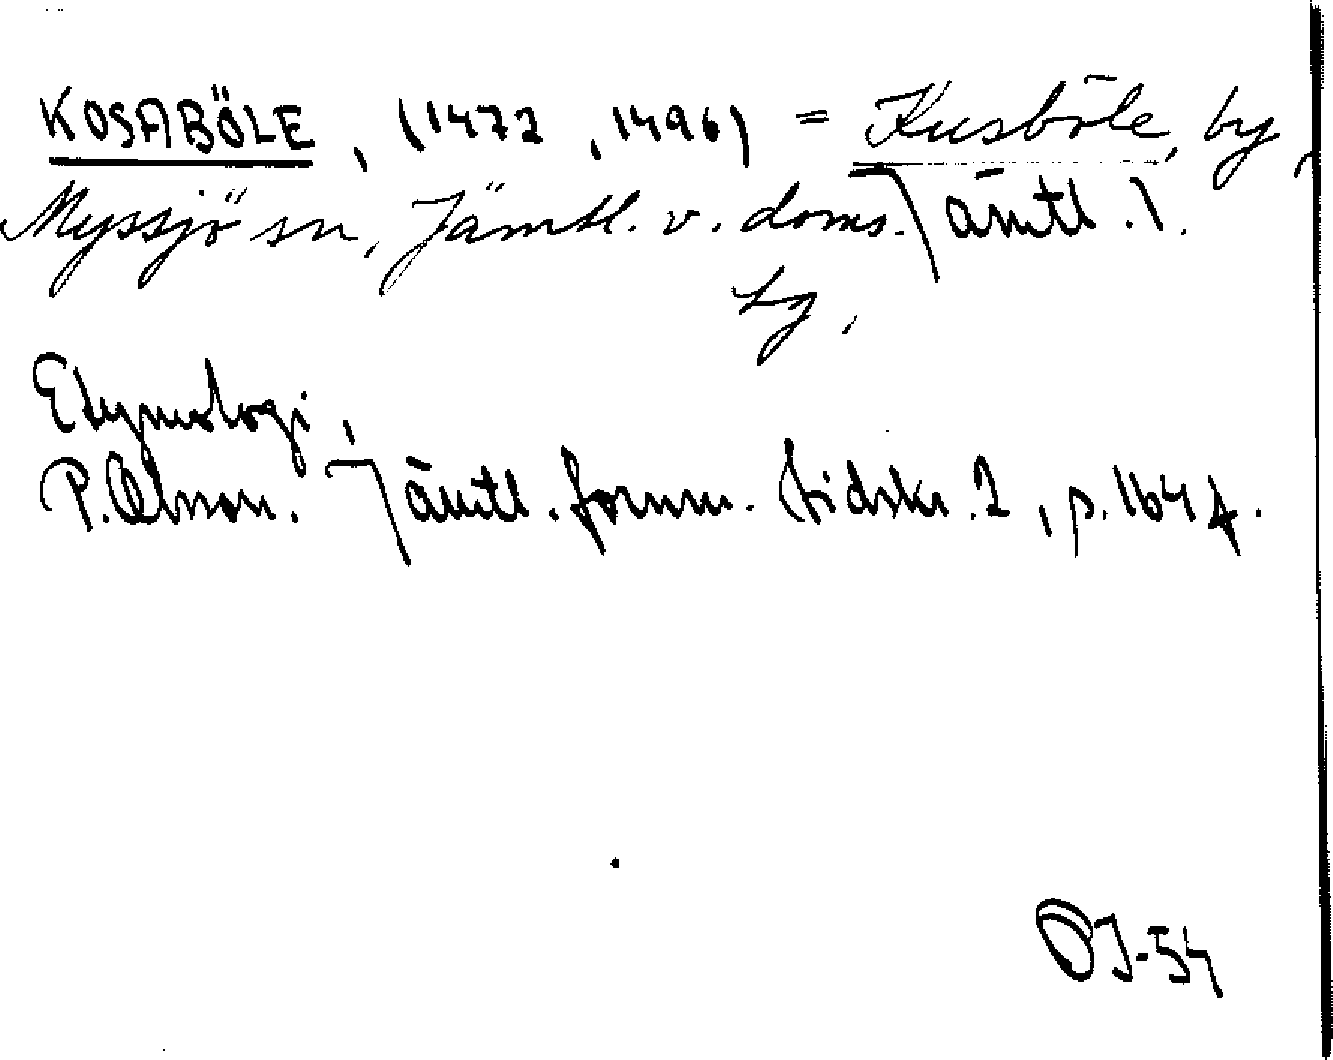 KOSABÖLE, (1472, 1496) = Kusböle, by,
Myssjö sn, Jämtl. v. doms. Jämtl. l.
sg,
Etymologi,
P. Olsson. Jämtl. fornm. tidskr. 2, p. 164 f.
OJ-54